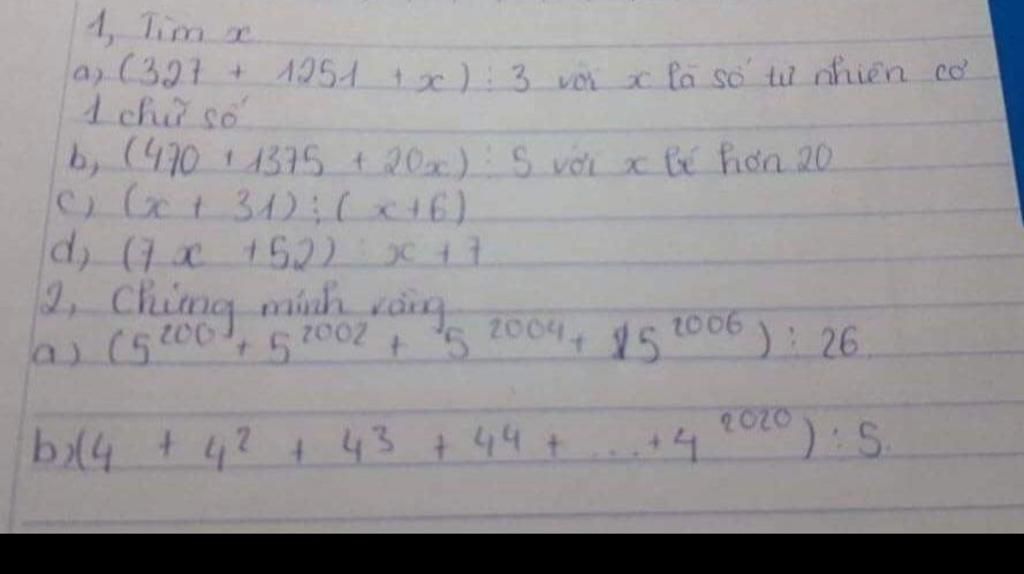 1, Tìm x
a, (327 + 1251 + x) ⋮ 3 với x là số tự nhiên có
1 chữ số
b, (470 + 1375 + 20x) ⋮ 5 với x bé hơn 20
c, (x + 31) ⋮ (x+6)
d, (7x + 52) ⋮ x + 7
2, Chứng minh rằng
a) (5²⁰⁰⁰ + 5²⁰⁰² + 5²⁰⁰⁴ + 5²⁰⁰⁶) ⋮ 26
b) (4 + 4² + 4³ + 4⁴ + ... + 4²⁰²⁰) ⋮ 5.